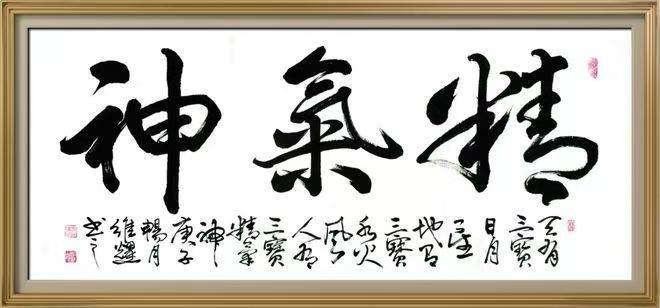 精氣神
天有
三寶
日月
星
地有
三寶
水火
風
人有
三寶
精氣
神
庚子
暢月
維
書之